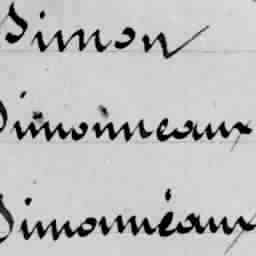 Simon
Simonneaux
Simonnéaux